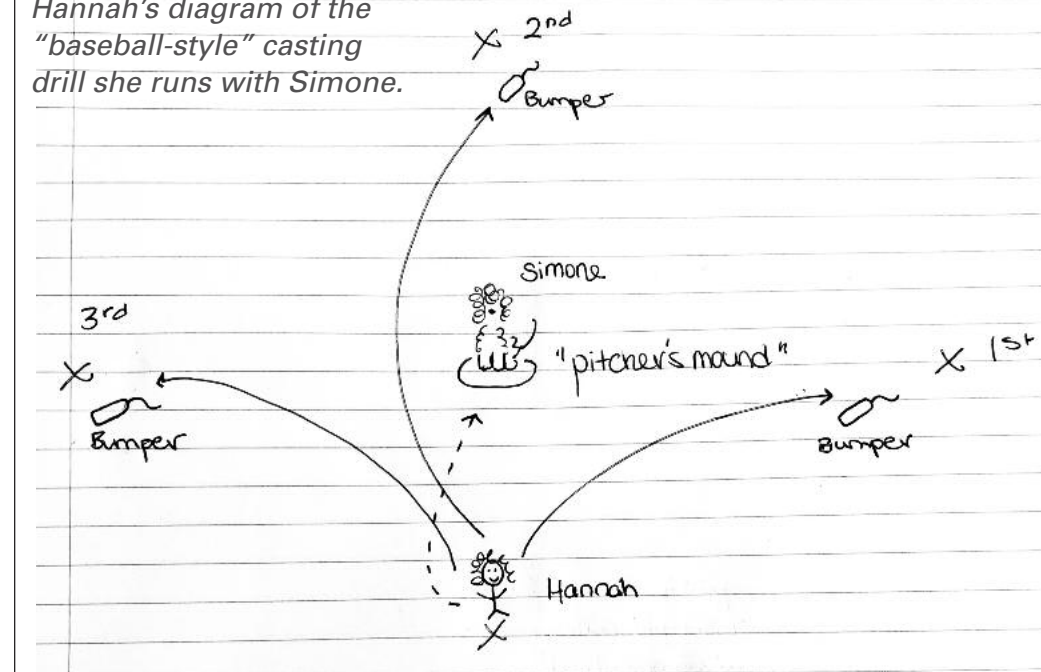 Hannah's diagram of the
"baseball-style" casting
drill she runs with Simone.
X 2nd
Bumper
Simone
3rd
"pitcher's mound"
X 1st
X
Bumper
Bumper
Hannah
X